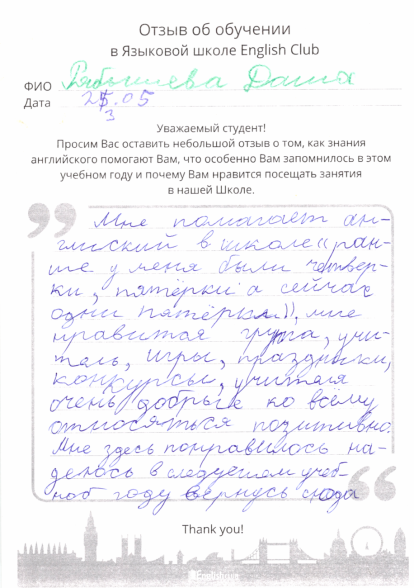 Отзыв об обучении
в Языковой школе English Club
ФИО Даша
Дата 23.05
Уважаемый студент!
Просим Вас оставить небольшой отзыв о том, как знания
английского помогают Вам, что особенно Вам запомнилось в этом
учебном году и почему Вам нравится посещать занятия
в нашей Школе.
Мне помагает ан-
глиский в школе (ран-
ше у меня были четвёр-
ки, пятёрки а сейчас
одни пятёрки), мне
нравится група, учи-
тель, игры, праздники,
конкурсы, учителя
очень добрые ко всему
относяться позитивно.
Мне здесь понравилось на-
деюсь в следуещем учеб-
ноб году вернусь сюда
Thank you!